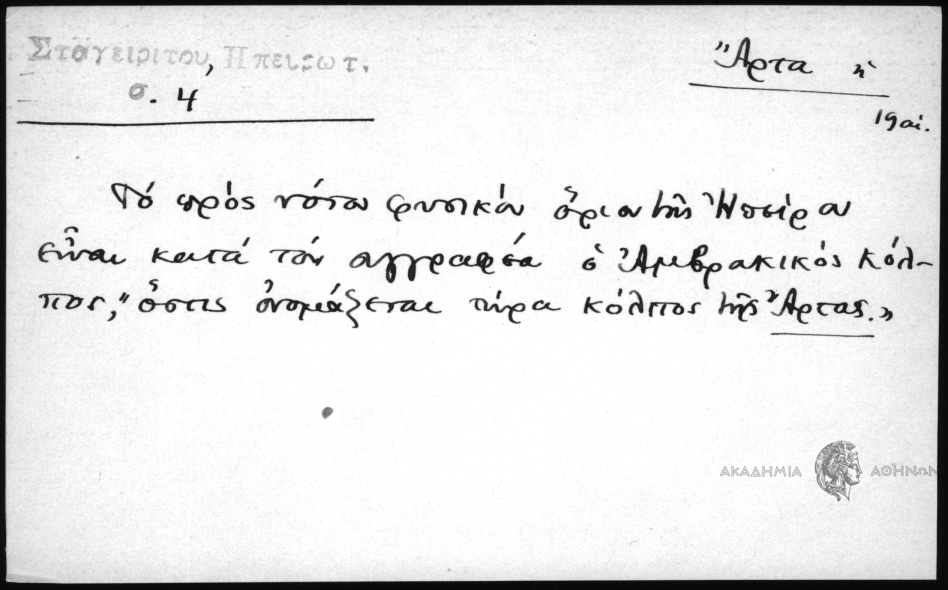 Σταγειρίτου, Ηπειρωτ.
σ. 4
Ἄρτα ἡ
19 αἰ.
Τό πρός νότον φυσικόν ὅριον τῆς Ἠπείρου
εἶναι κατά τόν συγγραφέα ὁ Ἀμβρακικός κόλ-
πος, "ὅστις ὀνομάζεται τώρα κόλπος τῆς Ἄρτας.»
ΑΚΑΔΗΜΙΑ ΑΘΗΝΩΝ